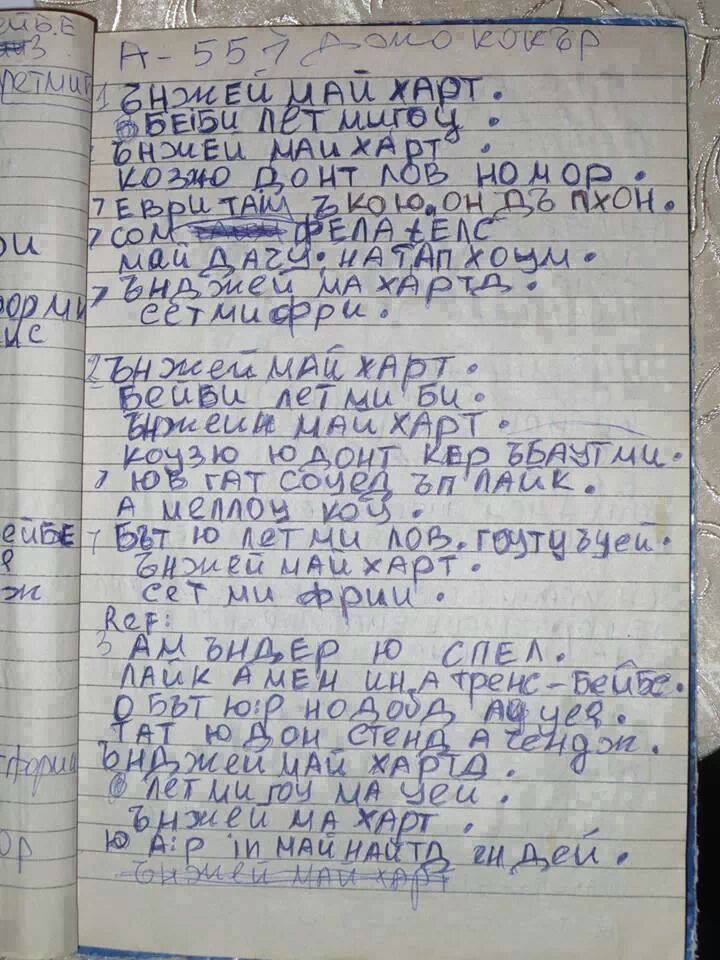 ЕЙБ.Е
РЕТМИ
ЕЙБЕ
А - 551 ДЖО КОКЪР
1 ЪНЖЕЙ МАЙ ХАРТ.
БЕІБИ ЛЕТ МИ ГОЦ.
ЪНЖЕЙ МАЙ ХАРТ.
КОЗЖО ДОНТ ЛОВ НОМОР.
7 ЕВРИ ТАЩ Ъ КОЮ.ОН ДЪ ПХОН.
7 СОМ ФЕЛА ЕЛС
МАЙ ДАЧУ. НА ТАП ХОЦМ.
7 ЪНДЖЕЙ МА ХАРТД.
СЕТ МИ ФРИ.
2 ЪНЖЕЙ МАЙ ХАРТ.
БЕЙБИ ЛЕТ МИ БИ.
ЪНЖЕЙН МАЙ ХАРТ.
КОЦЗЮ Ю ДОНТ КЕР ЪБАУТ МИ.
7 ЮВ ГАТ СОЦЕД ЪП ЛАЙК.
А МЕЛЛОЦ КОЦ.
7 БЪТ Ю ЛЕТ МИ ЛОВ. ГОЦТУ ЪЦЕЙ.
ЪНЖЕЙ МАЙ ХАРТ.
СЕТ МИ ФРИИ.
Ref:
3 АМ ЪНДЕР Ю СПЕЛ.
ЛАЙК А МЕН ИН.А ТРЕНС - БЕЙБЕ.
О БЪТ Ю:Р НО ДОБД
ТАТ Ю ДОН СТЕНД А ЧЕНДЖ.
ЪНДЖЕЙ МАЙ ХАРТД.
ЛЕТ МИ ГОЦ МА ЦЕЙ.
ЪНЖЕЙ МА ХАРТ.
Ю А:Р in МАЙ НАЙТД ЪН ДЕЙ.
ЪНЖЕЙ МАЙ ХАРТ